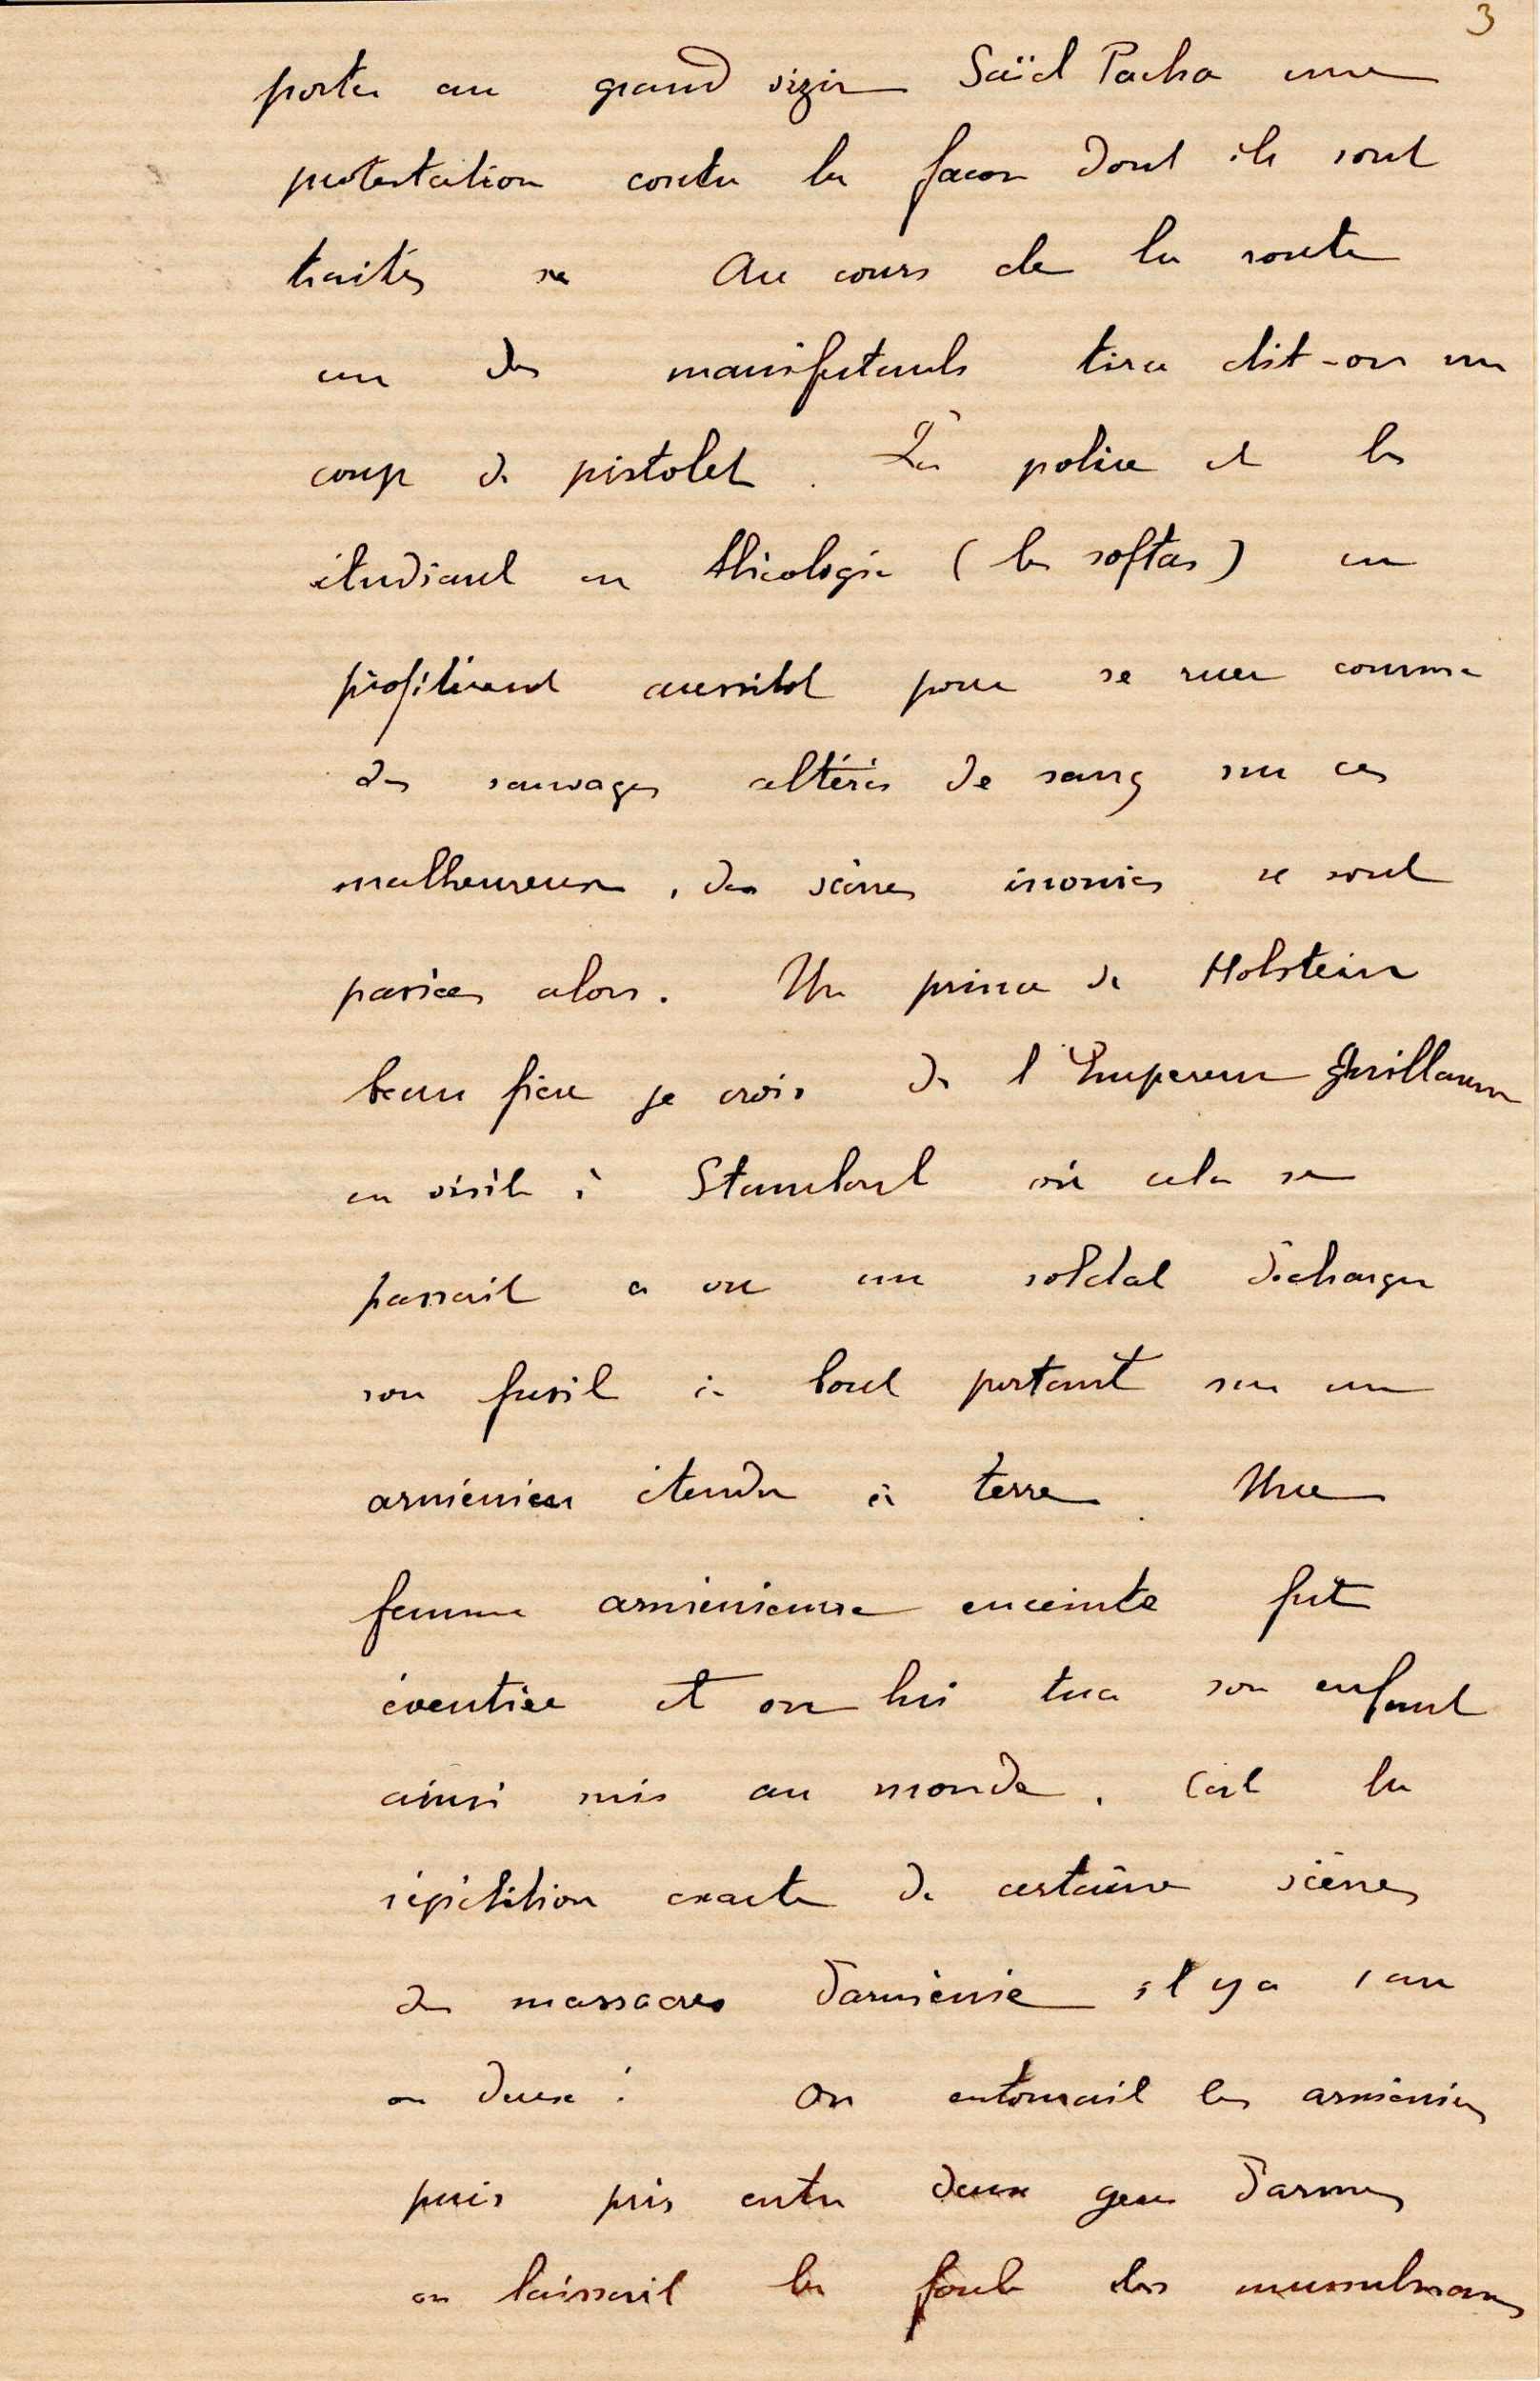 3
porter au grand vizir Saïd Pacha une
protestation contre la façon dont ils sont
traités Au cours de la route
un des manifestants tira dit-on un
coup de pistolet. La police et les
étudiant en théologie (les softas) en
profitèrent aussitot pour se ruer comme
des sauvages altérés de sang sur ces
malheureux, des scènes inouies se sont
passées alors. Un prince de Holstein
beau frère je crois de l'Empereur Guillaume
en visite à Stamboul où cela se
passait a vu un soldat décharger
son fusil à bout portant sur un
arménien étendu à terre. Une
femme arménienne enceinte fut
éventrée et on lui tua son enfant
ainsi mis au monde. C'est la
répétition exacte de certaine scènes
de massacres d'arménie il y a 1 an
ou deux : on entourait les arméniens
puis pris entre deux gens d'armes
on laissait la foule des musulmans